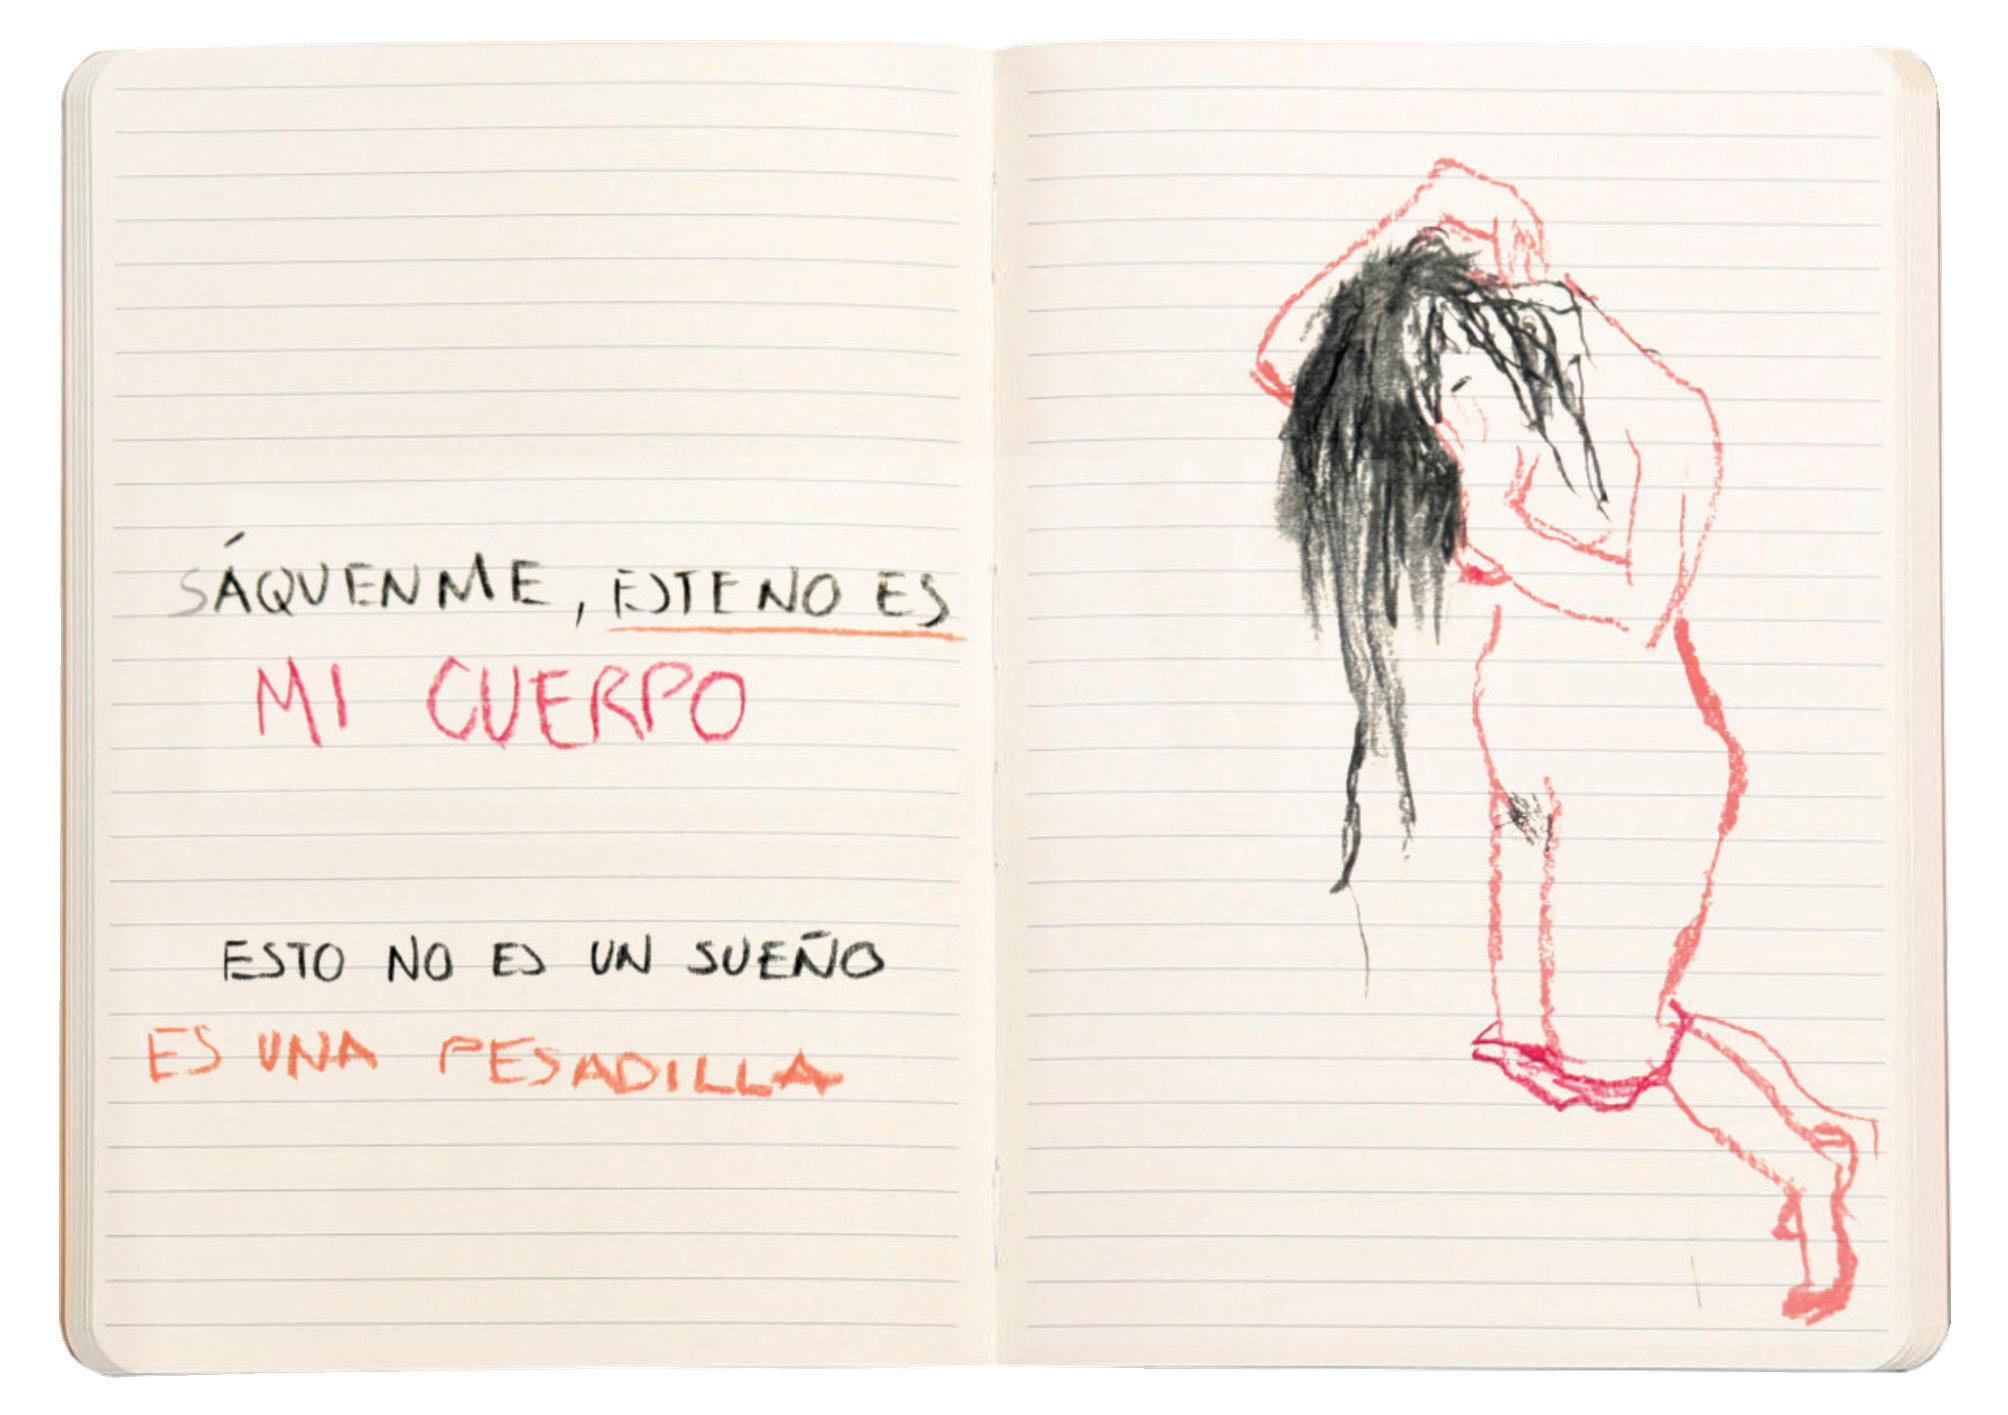 SÁQUENME, ESTE NO ES
MI CUERPO
ESTO NO ES UN SUEÑO
ES UNA PESADILLA